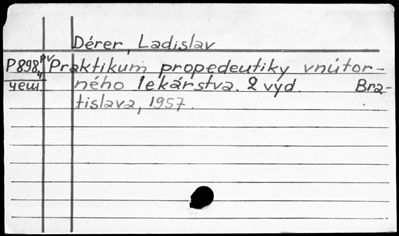 Dérer, Ladislav
P898,4 pv Praktikum propedeutiky vnútor-
чеш ného lekárstva. 2 vyd. Bra-
tislava, 1957.